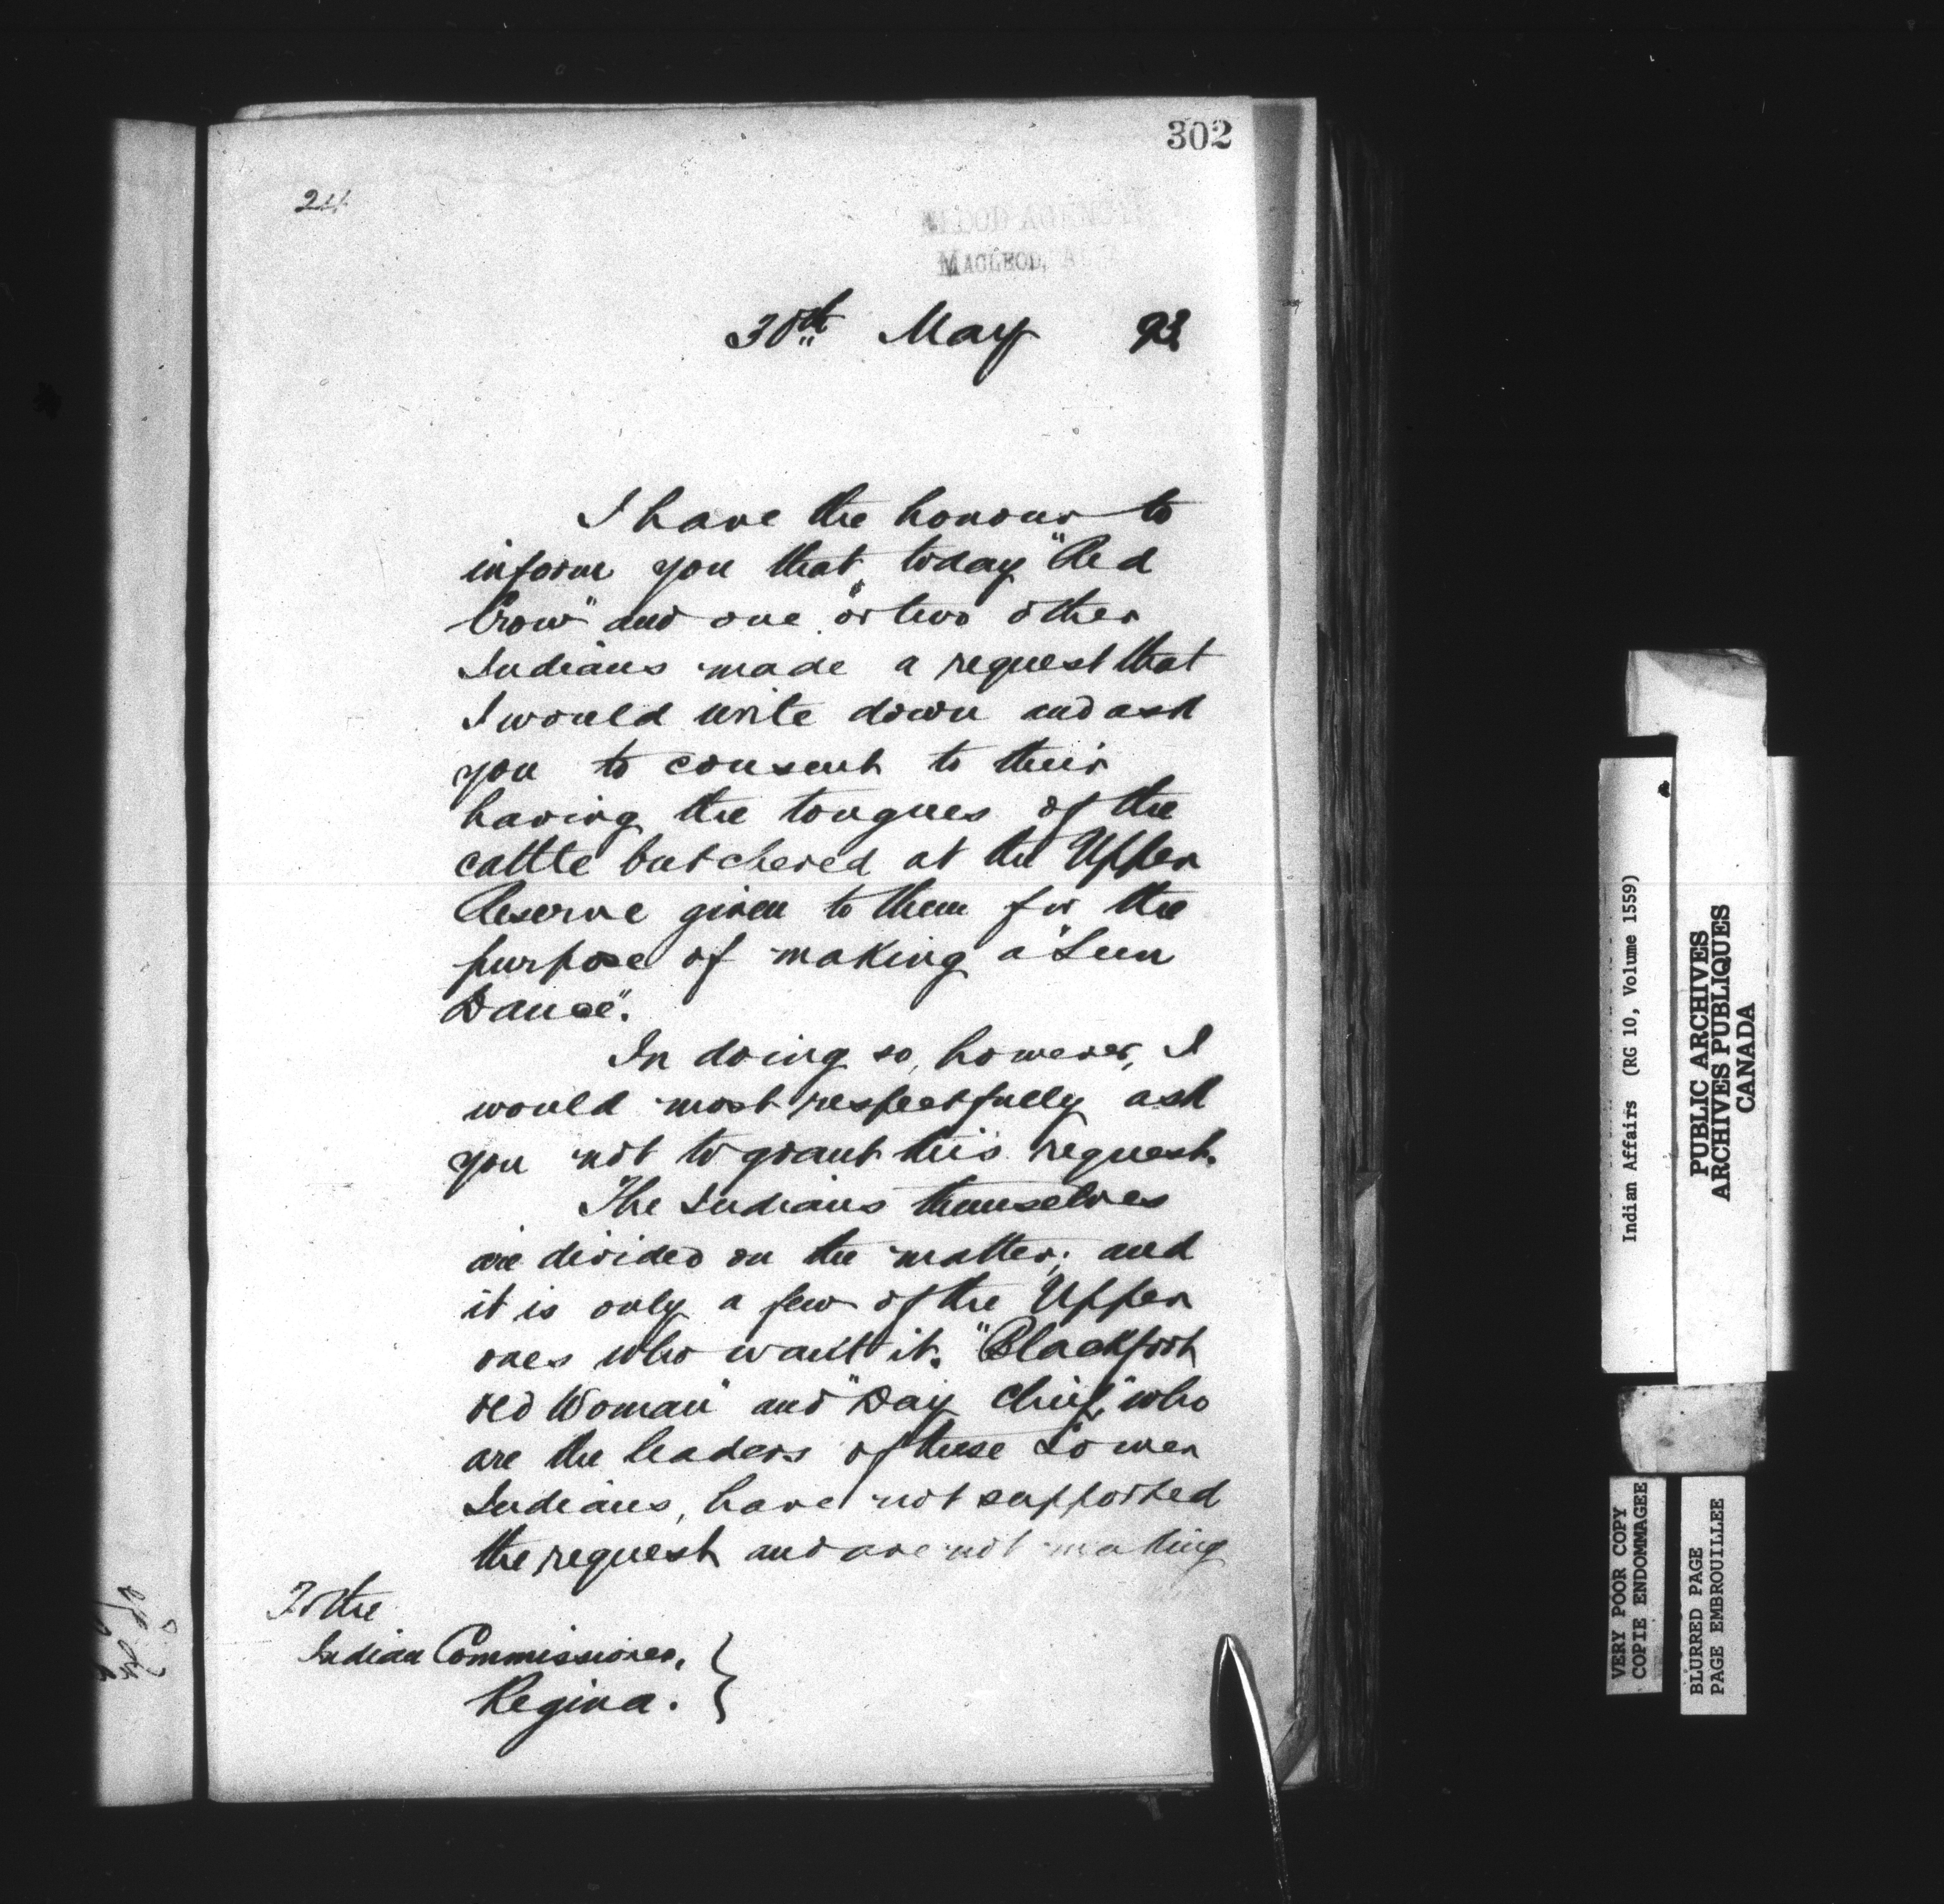 302
24
BLOOD AGENCY
MACLEOD,
30th May 93.
I have the honour to
inform you that today "Red
Crow" and one or two other
Indians made a request that
I would write down and ask
you to consent to their
having the tongues of the
cattle butchered at the Upper
Reserve given to them for the
purpose of making a "Sun
Dance".
In doing so, however, I
would most respectfully ask
you not to grant this request.
The Indians themselves
are divided on the matter; and
it is only a few of the Upper
ones who want it. "Blackfoot
Old Woman" and "Day Chief," who
are the leaders of these Lower
Indians, have not supported
the request and are not making
To the
Indian Commissioner,
Regina.
Indian Affairs (RG 10, Volume 1559)
PUBLIC ARCHIVES
ARCHIVES PUBLIQUES
CANADA
VERY POOR COPY
COPIE ENDOMMAGEE
BLURRED PAGE
PAGE EMBROUILLEE